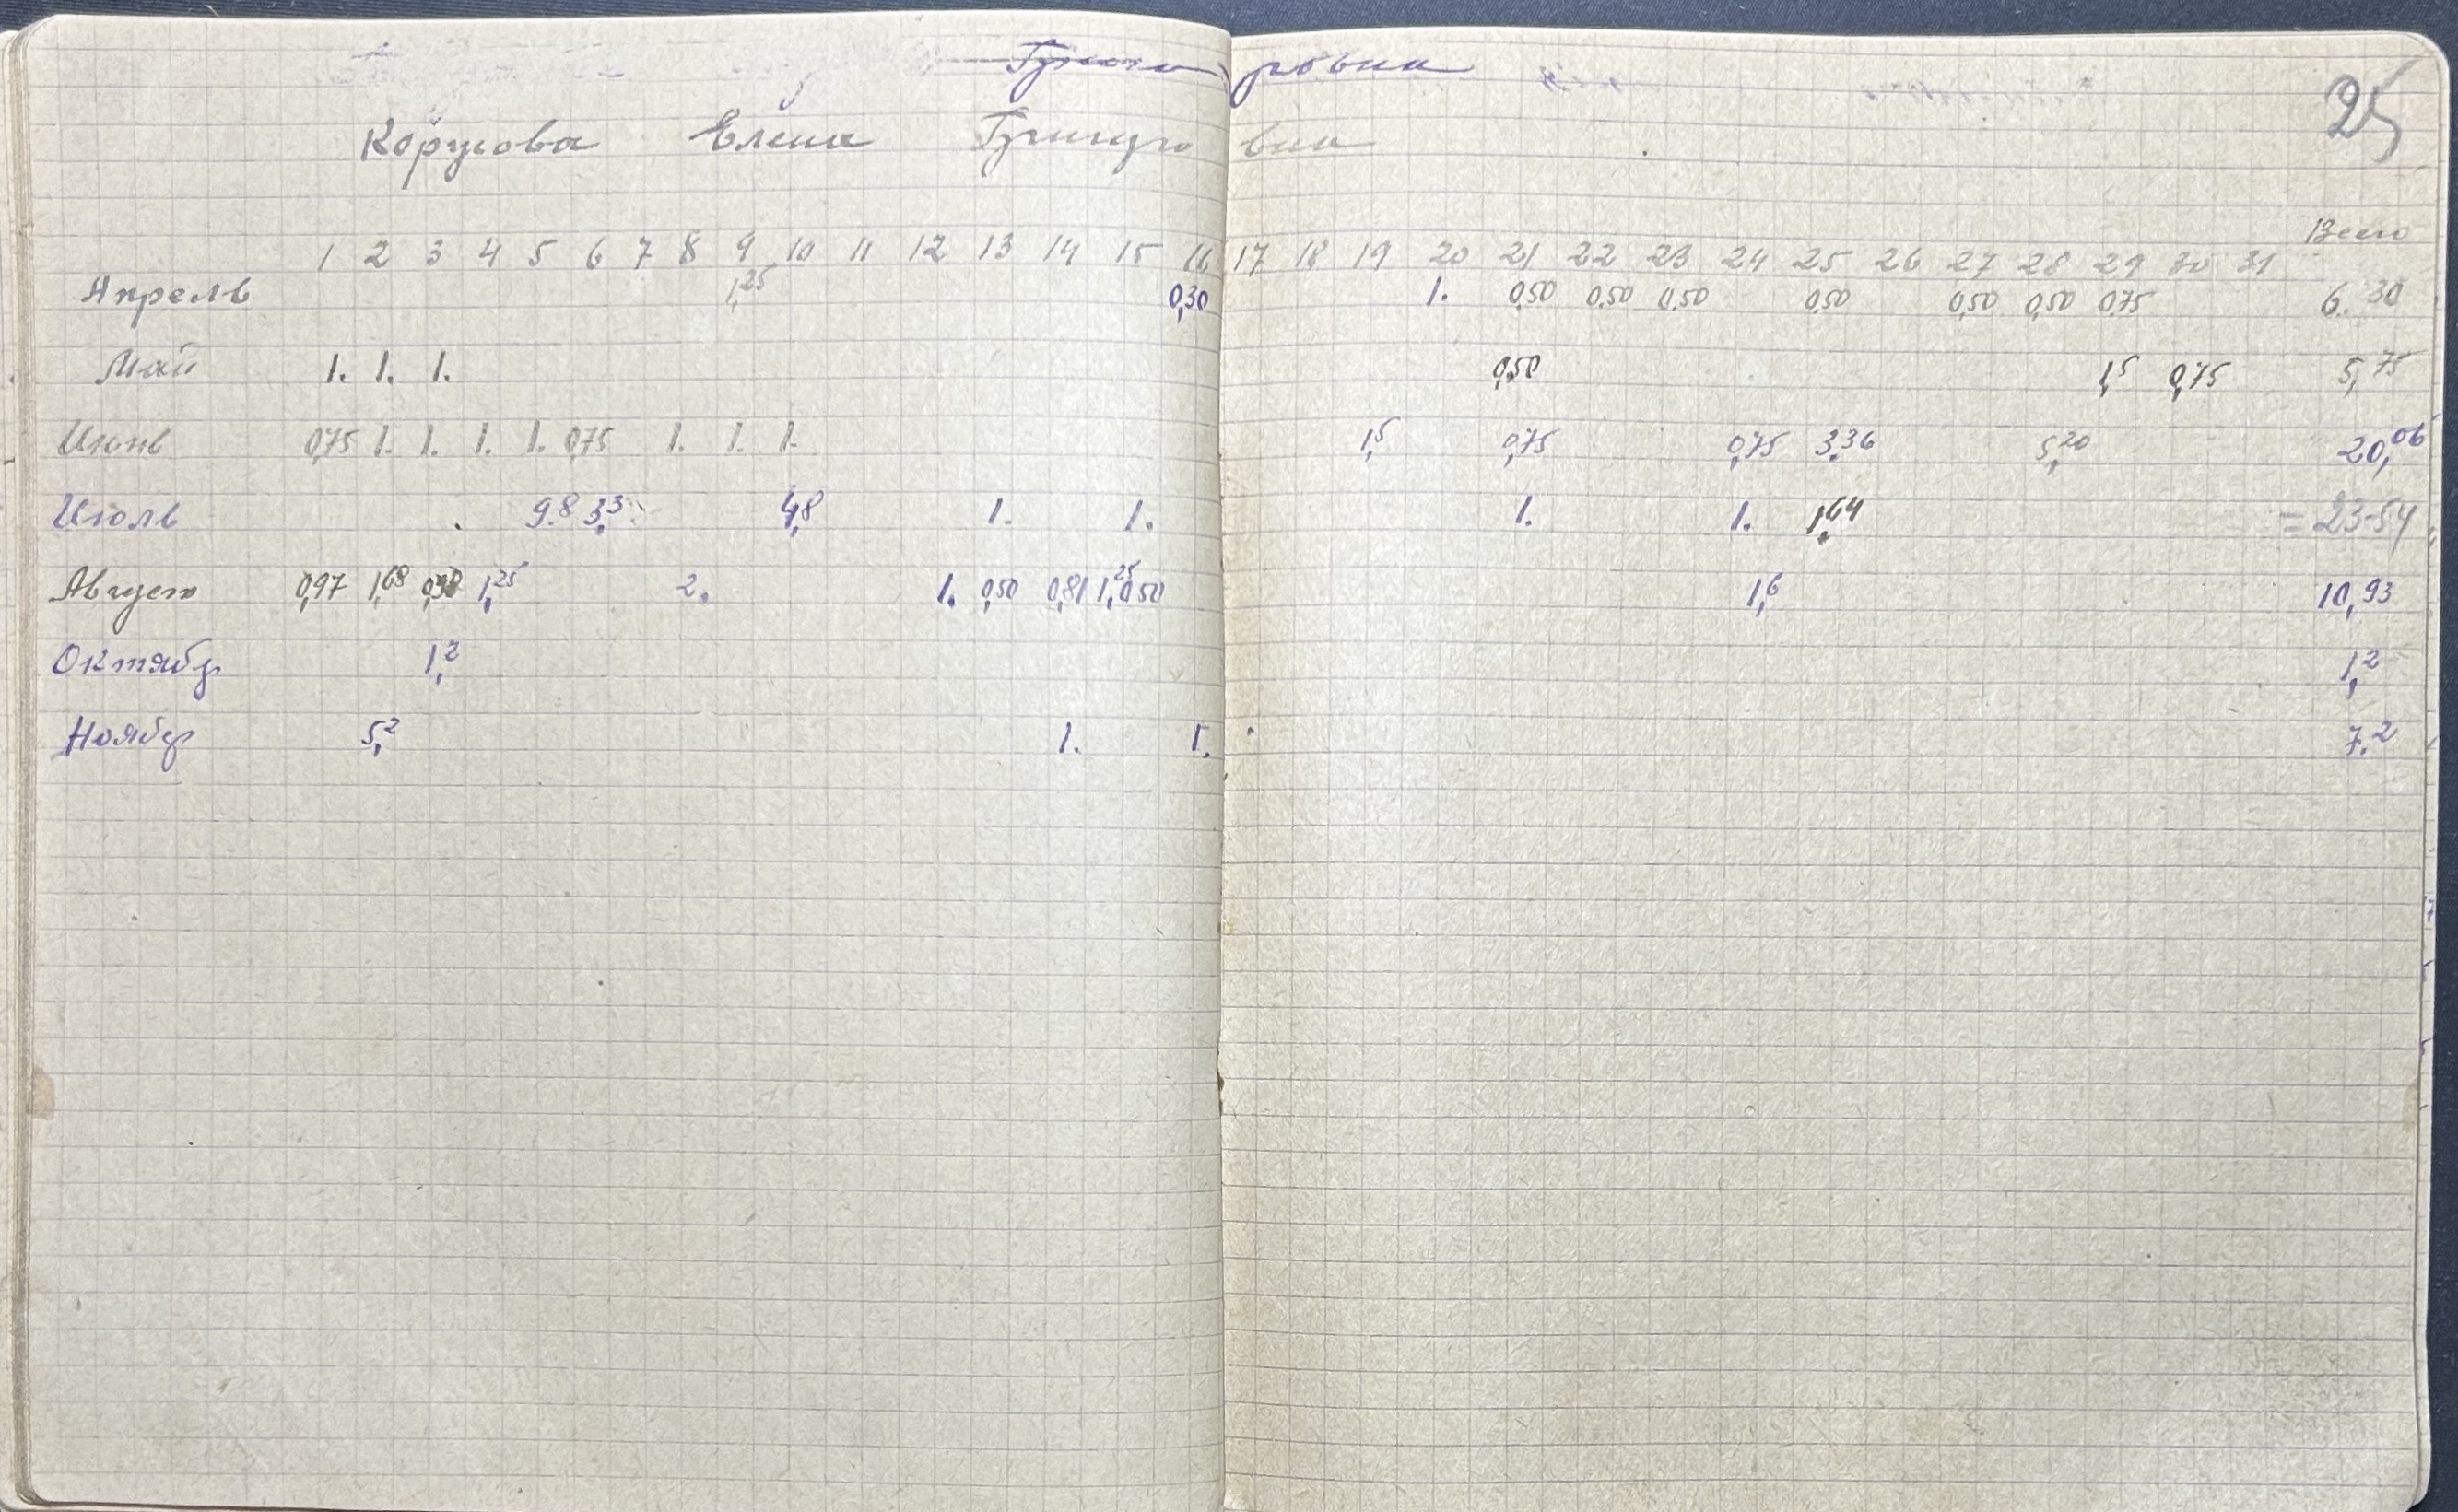 Елена
25
Всего
1 2 3 4 5 6 7 8 9 10 11 12 13 14 15 16 17 18 19 20 21 22 23 24 25 26 27 28 29 30 31
Апрель 1,25 0,30 1. 0,50 0,50 0,50 0,50 0,50 0,50 0,75 6.30
Май 1. 1. 1. 0,50 1,5 0,75 5,75
Июнь 0,75 1. 1. 1. 1. 0,75 1. 1. 1. 1,5 0,75 0,75 3,36 5,20 20,06
Июль 9.8 3,3 4,8 1. 1. 1. 1. 1,64 = 23-54
Август 0,97 1,68 1,25 2. 1. 0,50 0,81 1,25 0,50 1,6 10,93
Октябр 1,2 1,2
Ноябр 5,2 1. 1. 7.2